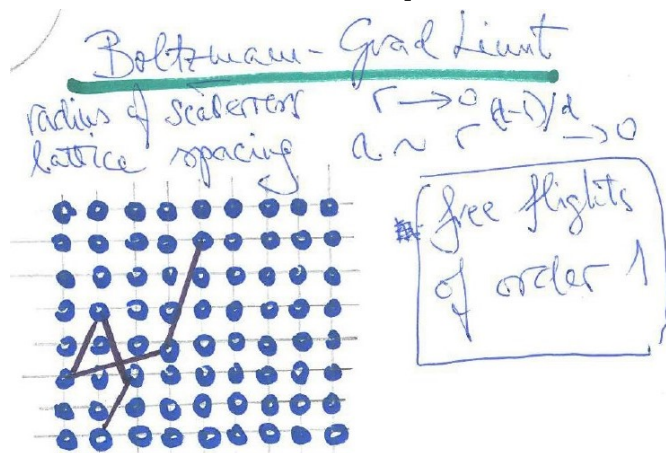 Boltzmann-Grad Limit
radius of scaterrers r → 0
lattice spacing a ~ r^(d-1)/d → 0
free flights
of order 1